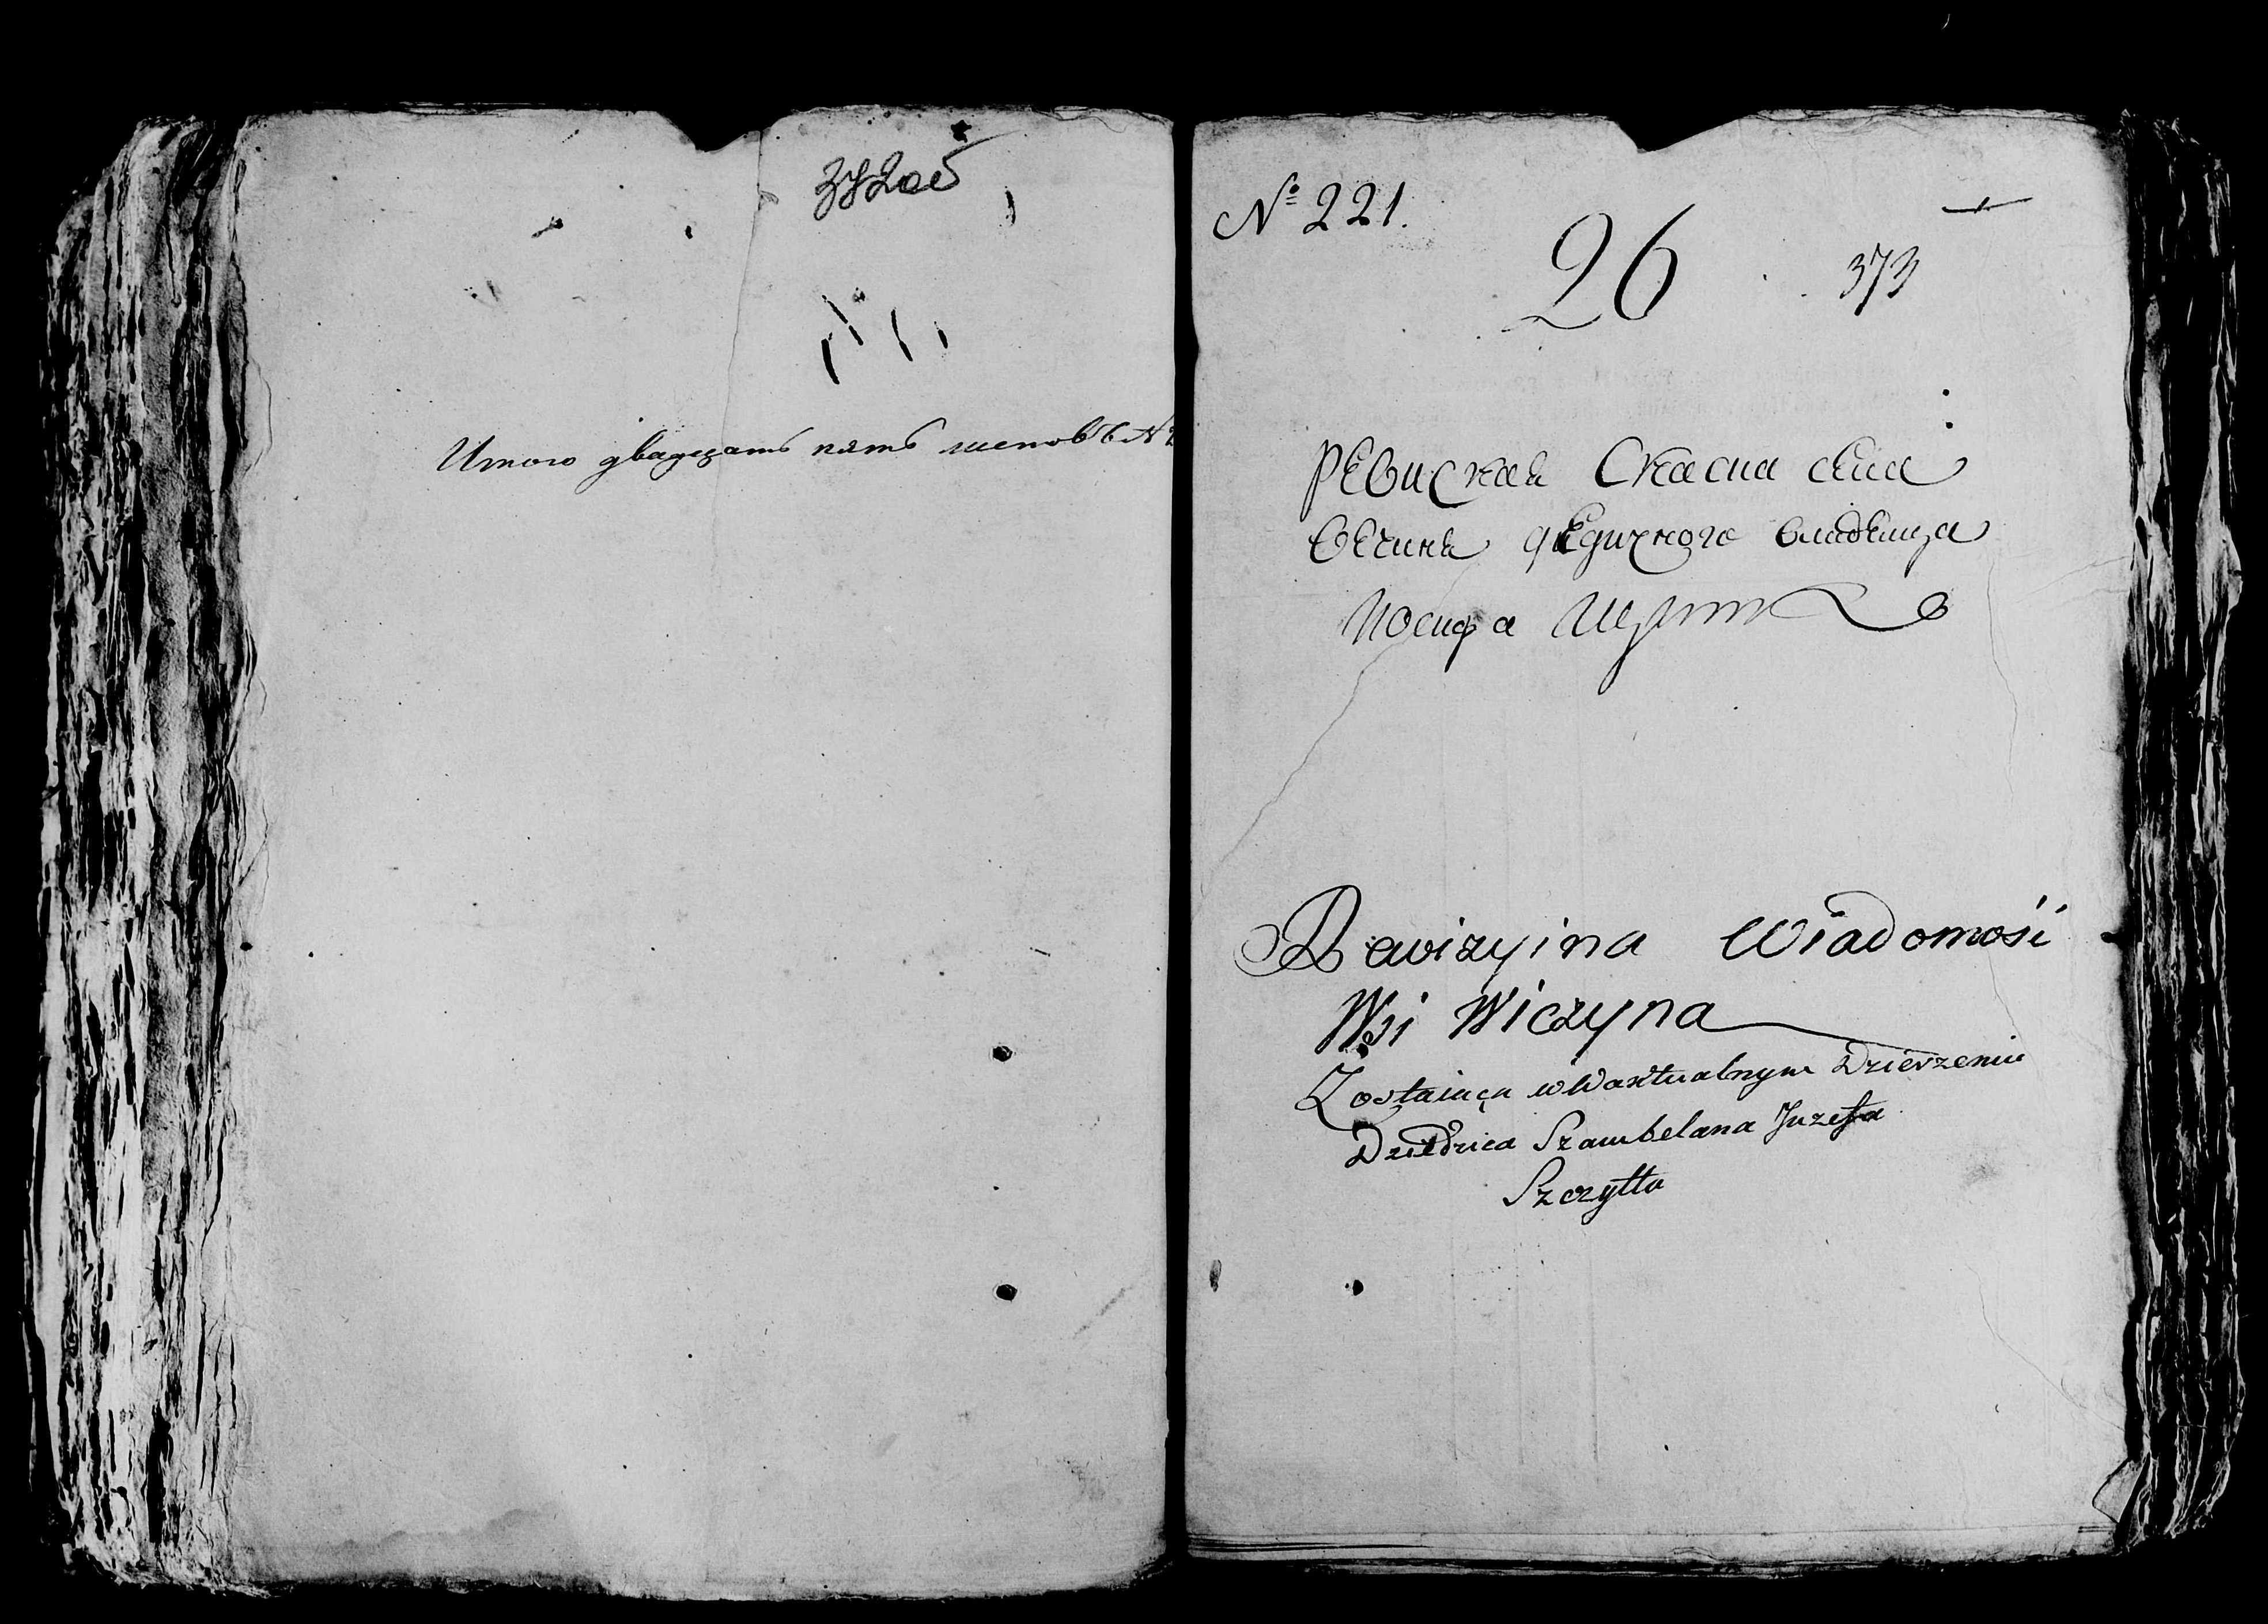 372об
Итого двадцать пять листовъ №
№ 221.
26
373
Ревиская Скаска села
Вечиня дѣдичного владѣлца
Иосифа
Rewizyina Wiadomość
Wsi Wiczyna
Zostaiąca w Waktualnym Dzierzeniu
Dziedzica Szambelana Juzefa
Szczytta